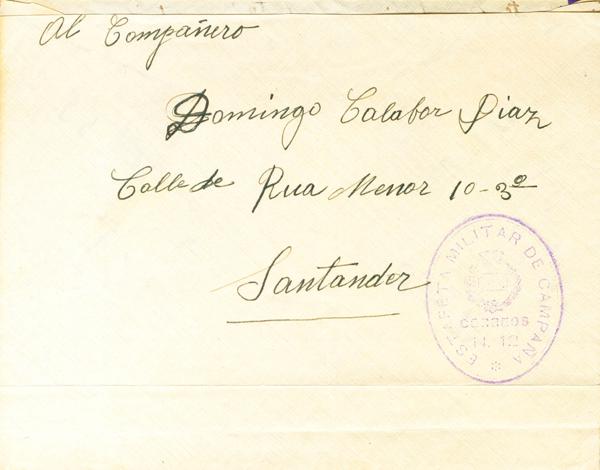 Al Compañero
Domingo Calabor Diaz
Calle de Rua Menor 10-3º
Santander
ESTAFETA MILITAR DE CAMPAÑA
CORREOS
N. 12